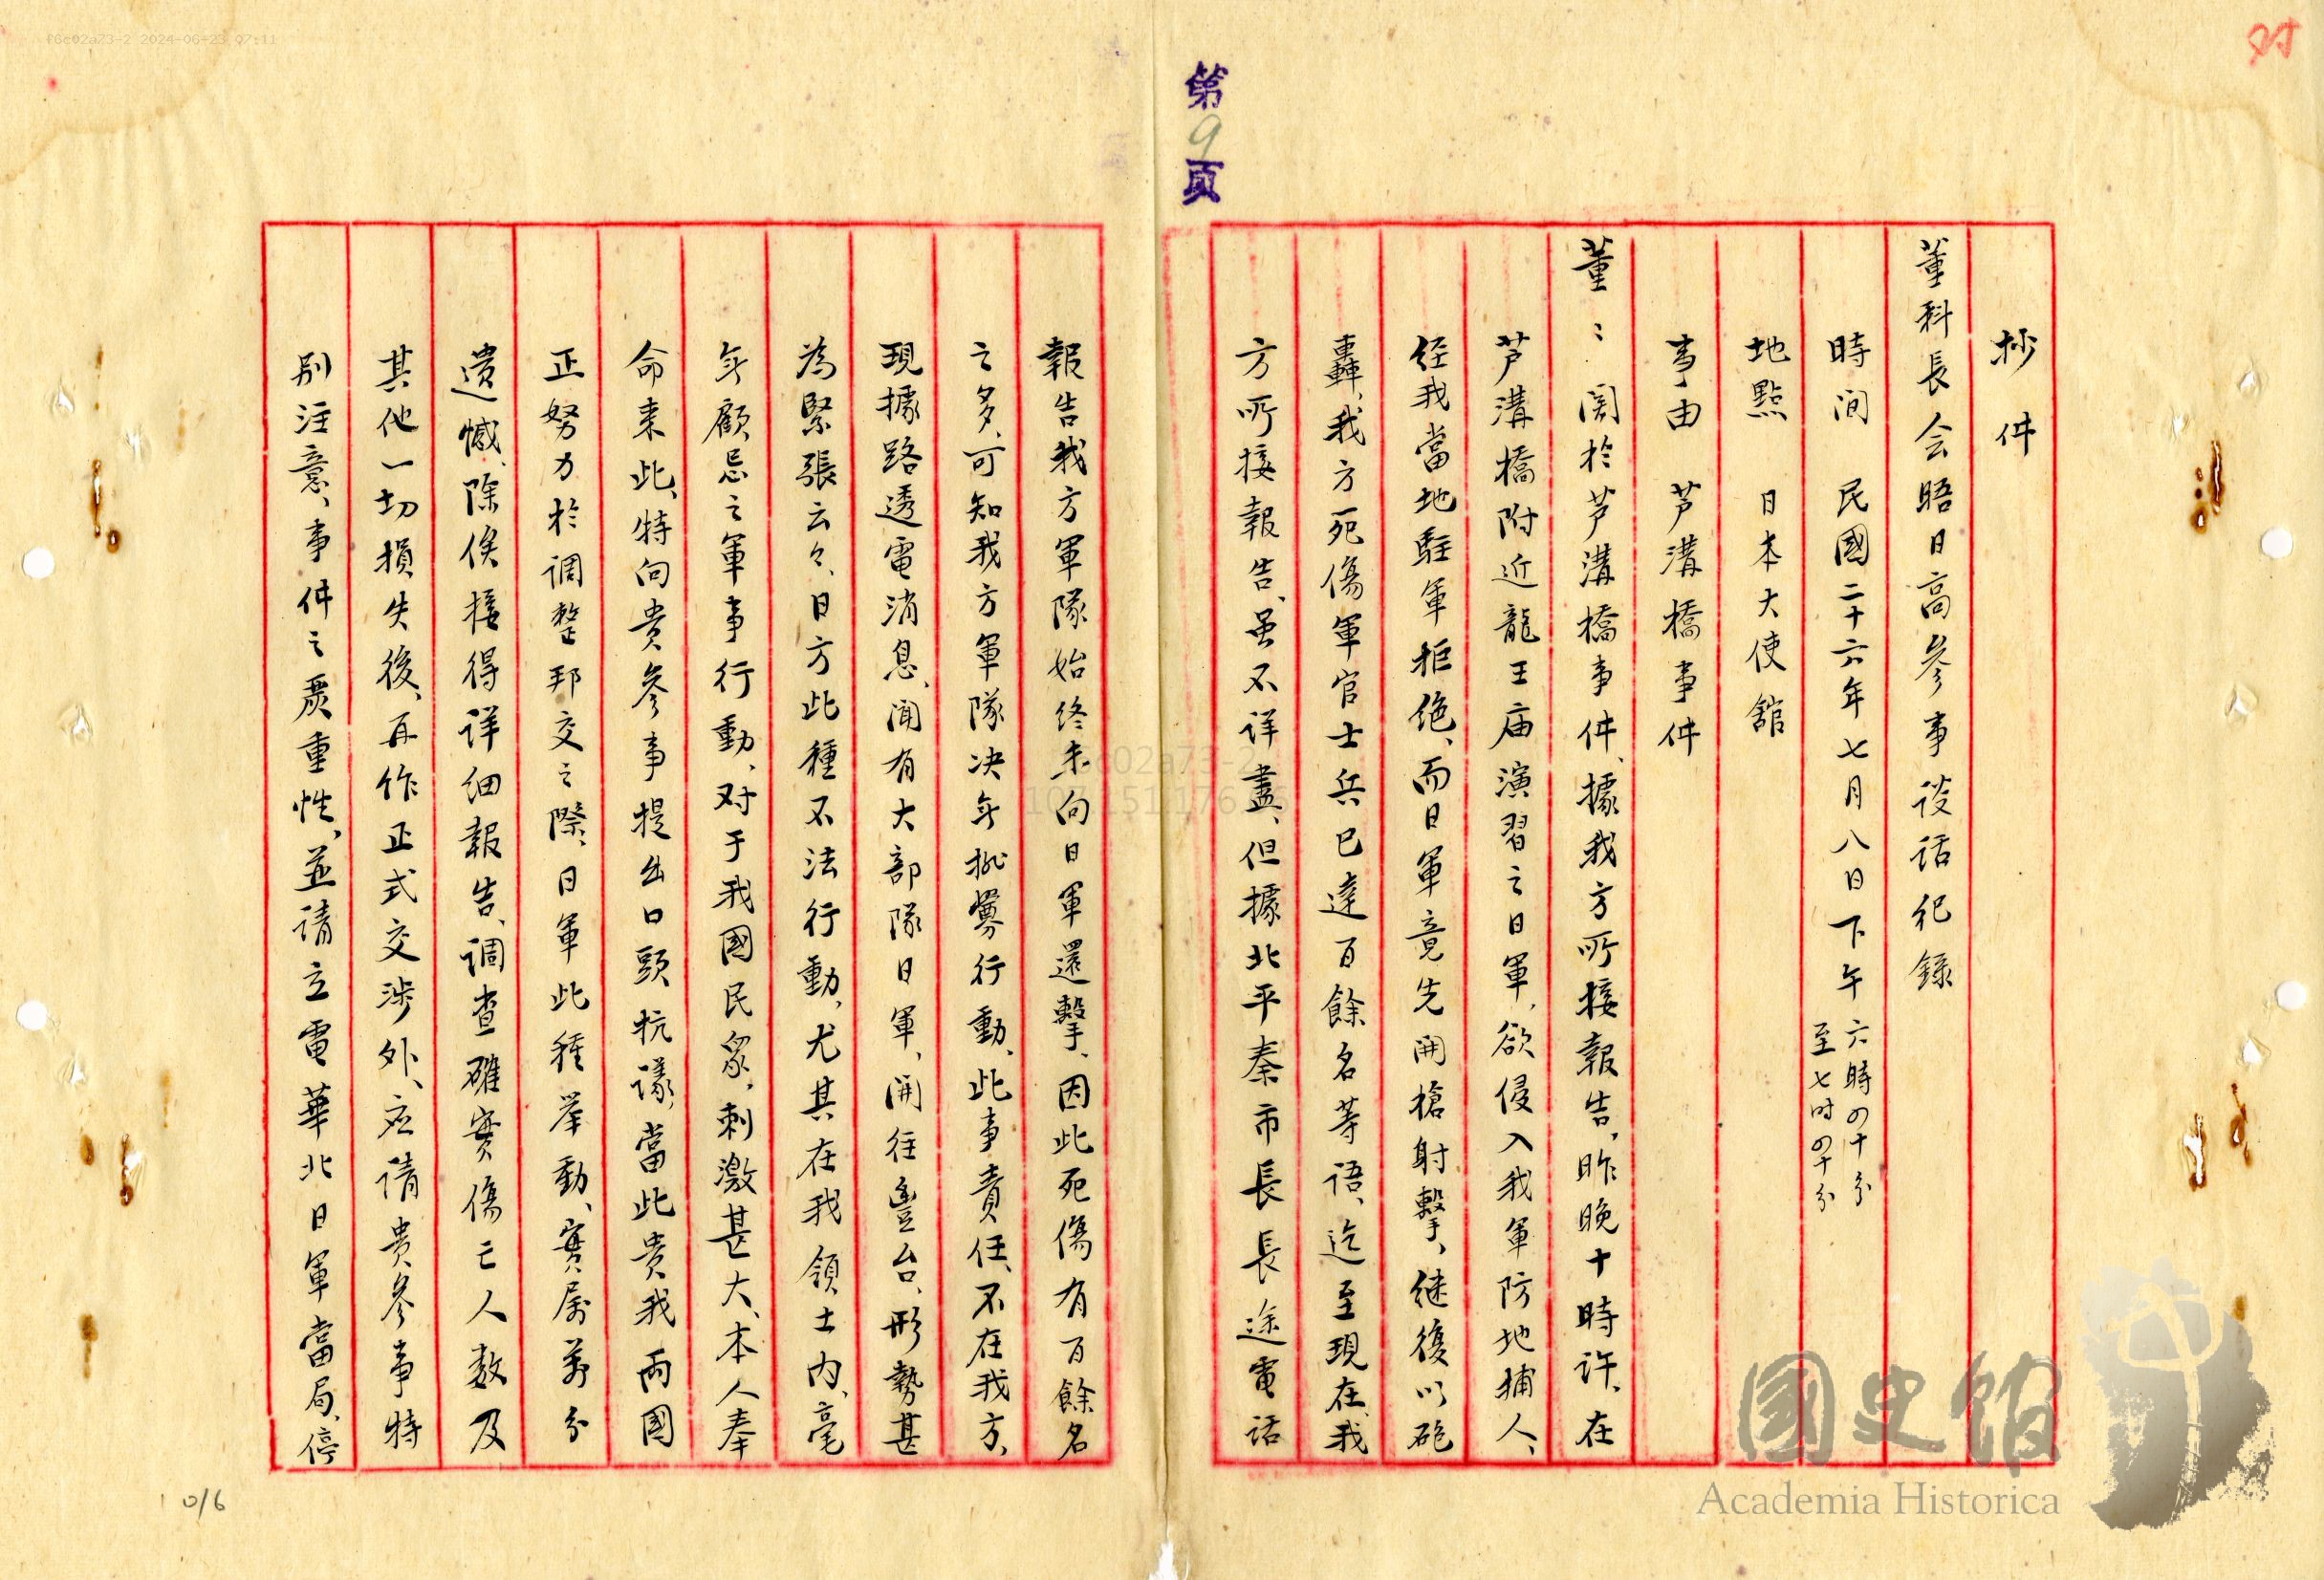 抄件
董科長会晤日高參事谈话纪錄
時间 民國二十六年七月八日下午六時四十分
至七时四十分
地點 日本大使舘
事由 芦溝橋事件
董：関於芦溝橋事件、據我方所接報告、昨晚十時许、在
芦溝橋附近龍王庙演習之日軍、欲侵入我軍防地捕人、
经我當地駐軍拒绝、而日軍竟先開槍射擊、继復以砲
轟、我方死傷軍官士兵已達百餘名等语、迄至現在、我
方所接報告、虽不详盡、但據北平秦市長長途電话
報告我方軍隊始终未向日軍還擊、因此死傷有百餘名
之多、可知我方軍隊决无挑釁行動、此事責任、不在我方、
現據路透電消息、闻有大部隊日軍、開往豐台、形勢甚
為緊張云々、日方此種不法行動、尤其在我領土内、毫
无顧忌之軍事行動、对于我國民衆、刺激甚大、本人奉
命来此、特向贵參事提出口頭抗議、當此贵我两國
正努力於调整邦交之際、日軍此種举動、實属萬分
遗憾、除俟接得详细報告、调查確實傷亡人数及
其他一切損失後、再作正式交涉外、应请贵參事特
别注意、事件之嚴重性、並请立電華北日軍當局、停
第9頁
016
國史館
Academia Historica
f6c02a73-2 2024-06-23 07:11